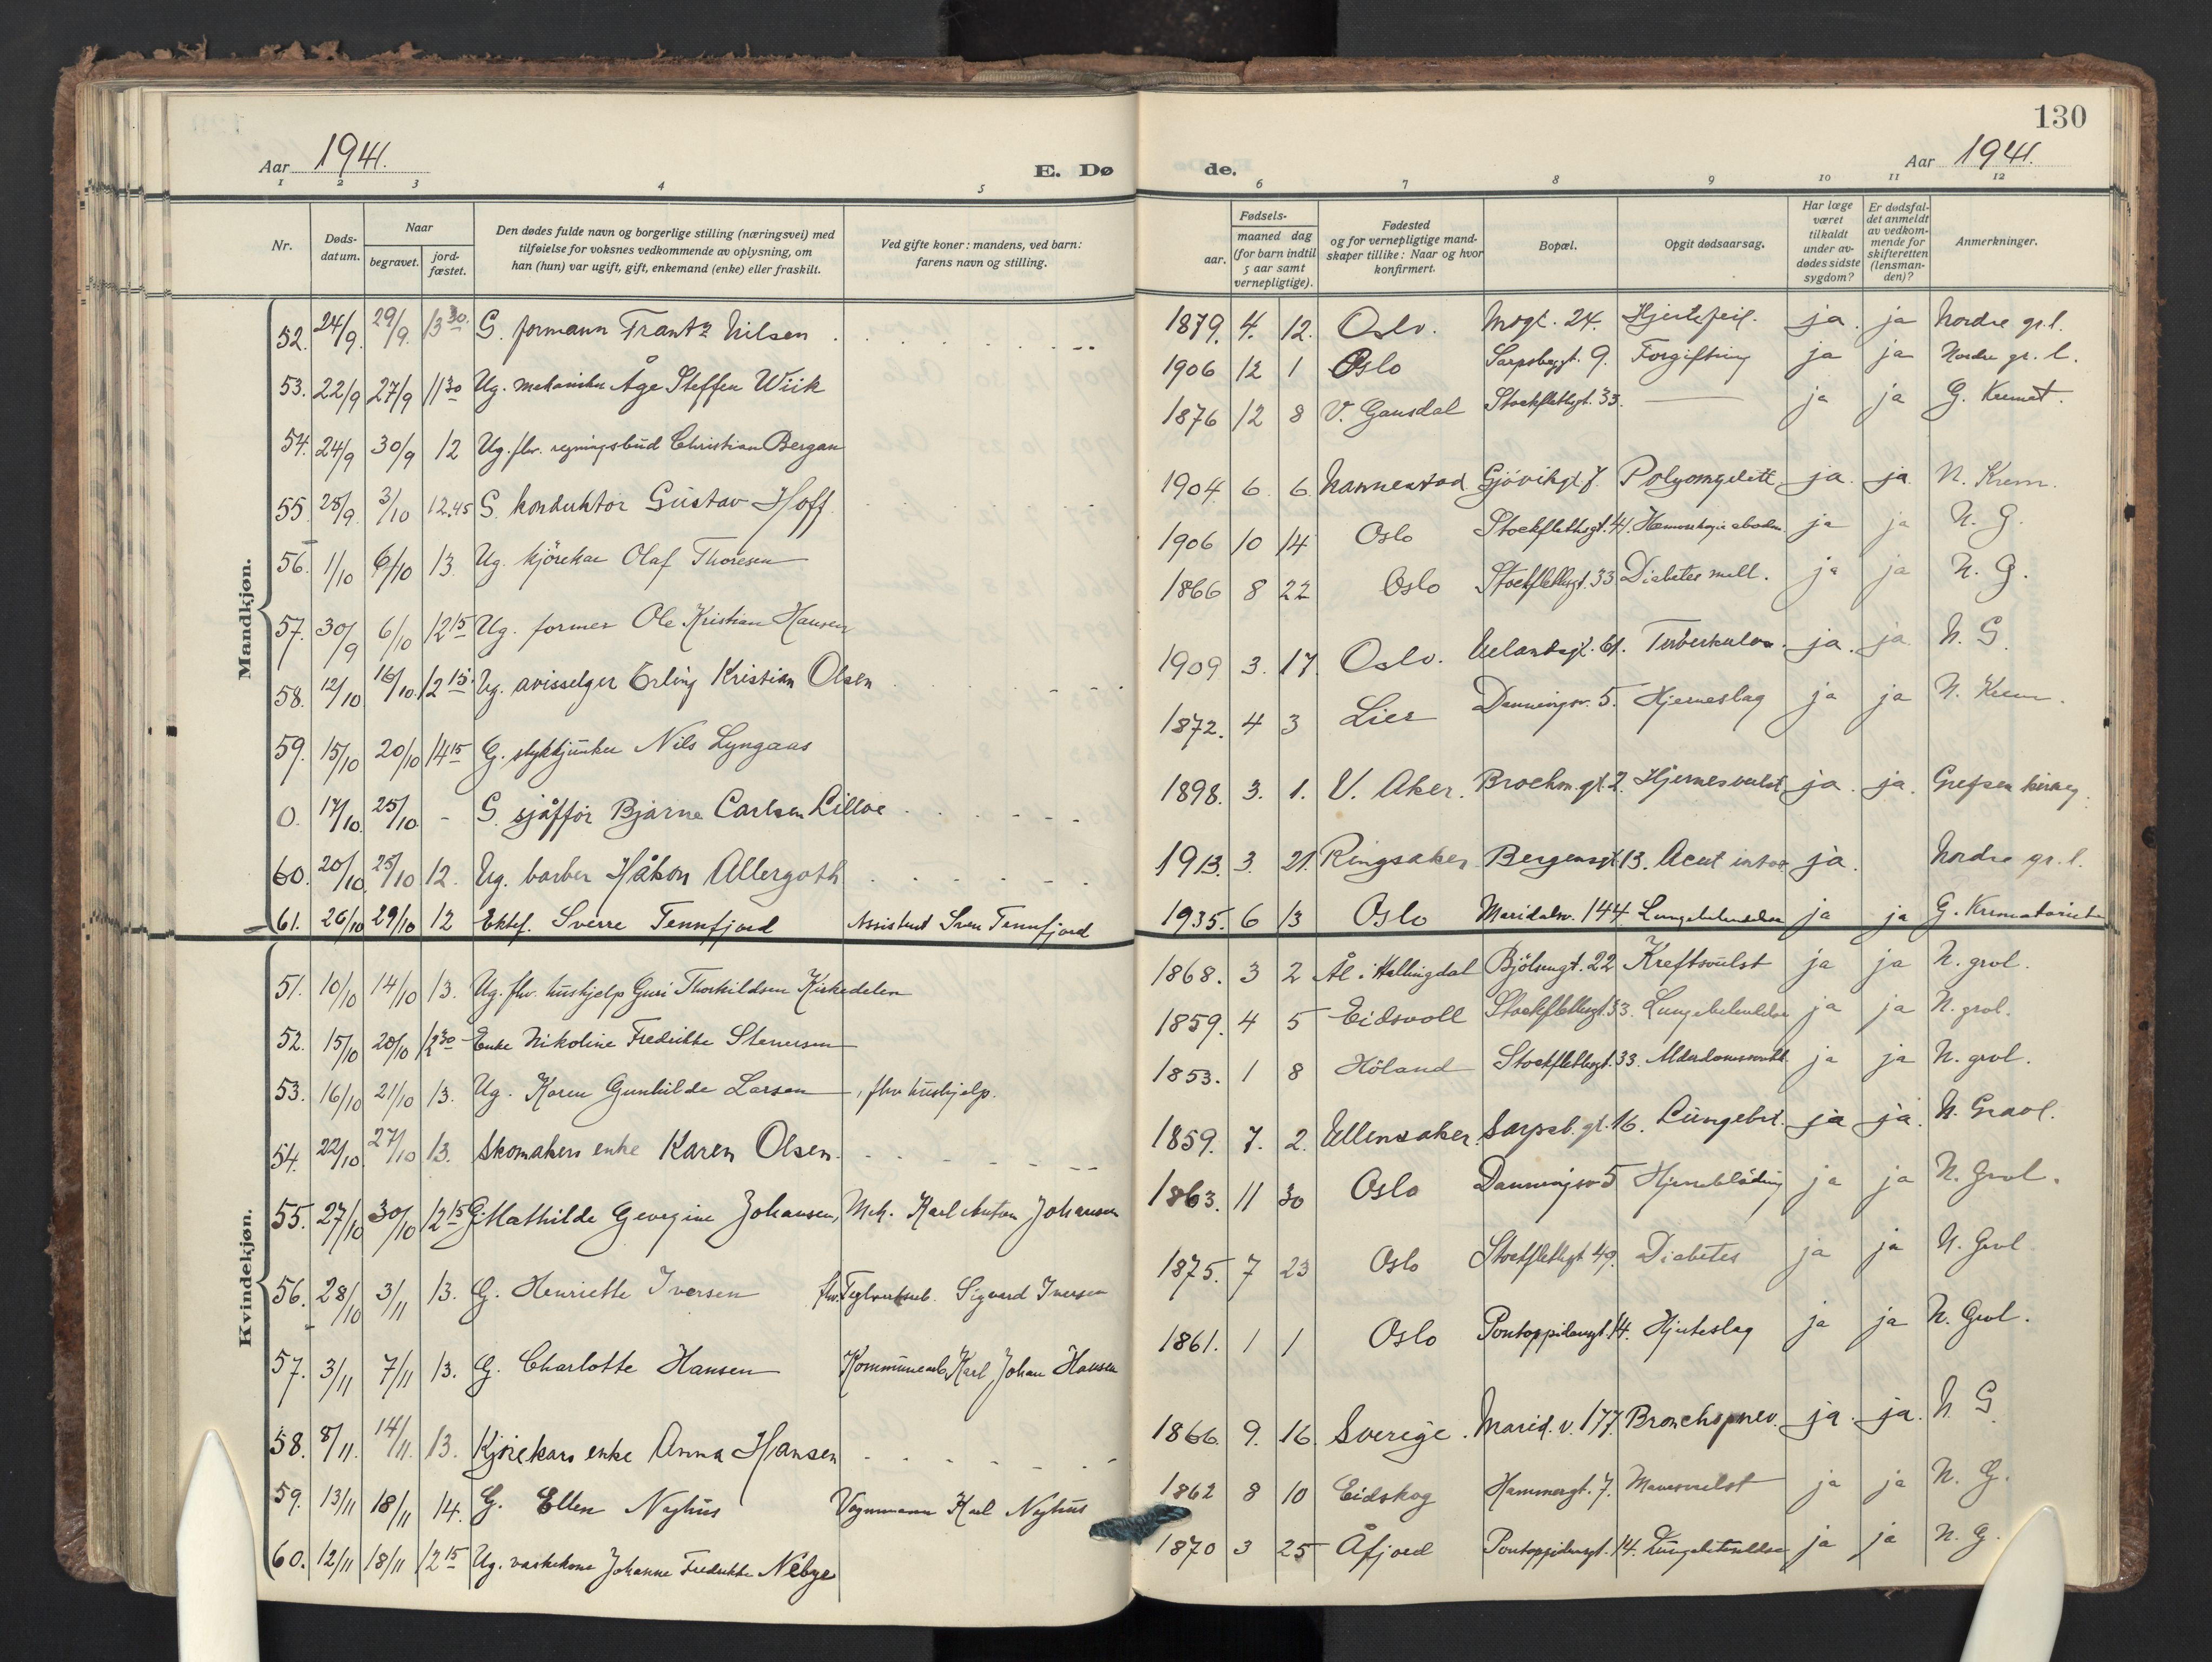 130
Aar 1941.
E. Dø
de.
Aar 1941.
1 2 3 4 5
6 7 8 9 10 11 12
Nr.
Døds-
datum.
Naar
begravet.
jord-
fæstet.
Den dødes fulde navn og borgerlige stilling (næringsvei) med
tilføielse for voksnes vedkommende av oplysning, om
han (hun) var ugift, gift, enkemand (enke) eller fraskilt.
Ved gifte koner: mandens, ved barn:
farens navn og stilling.
Fødsels-
aar.
maaned dag
(for barn indtil
5 aar samt
vernepligtige).
Fødested
og for vernepligtige mand-
skaper tillike: Naar og hvor
konfirmert.
Bopæl.
Opgit dødsaarsag.
Har læge
været
tilkaldt
under av-
dødes sidste
sygdom?
Er dødsfal-
det anmeldt
av vedkom-
mende for
skifteretten
(lensman-
den)?
Anmerkninger.
Mandkjøn.
52. 24/9. 29/9. 13 30. G. formann Frantz Nilsen
53. 22/9 27/9 11 30 Ug. mekaniker Åge Steffen Wiik
54. 24/9 30/9 12 Ug. fhv. regningsbud Christian Bergan
55. 28/9 3/10 12.45 G. konduktør Gustav Hoff
56. 1/10 6/10 13. Ug. kjörekar Olaf Thoresen
57. 30/9 6/10 12 15 Ug. former Ole Kristian Hansen
58. 12/10 16/10. 12 15. Ug. avisselger Erling Kristian Olsen
59. 15/10 20/10 14 15 G. stykkjunker Nils Lyngaas
0. 17/10. 25/10. - G. sjåffør Bjarne Carlsen Lilloe
60. 20/10. 25/10 12. Ug. barber Håkon Allergoth
61. 26/10 29/10 12 Ektef. Sverre Tennfjord Assistent Sven Tennfjord
Kvindekjøn.
51. 10/10 14/10 13. Ug. fhv. hushjelp Guri Thorkildsen Kirkedelen
52. 15/10 20/10 12 30 Enke Nikoline Fredrikke Stenersen
53. 16/10 21/10 13. Ug. Karen Gunhilde Larsen, fhv hushjelp.
54. 22/10. 27/10 13. Skomakers enke Karen Olsen.
55. 27/10 30/10 12 15 G. Mathilde Georgine Johansen, Mek. Karl Anton Johansen
56. 28/10 3/11 13. G. Henriette Iversen fhv. Teglverksarb. Sigvard Iversen
57. 3/11 7/11 13. G. Charlotte Hansen Kommunearb. Karl Johan Hansen
58. 8/11. 14/11. 13. Kjørekars enke Anna Hansen
59. 13/11 18/11 14. G. Ellen Nyhus Vognmann Karl Nyhus
60. 12/11 18/11 12 15 Ug. vaskekone Johanne Fredrikke Nebye
1879. 4. 12. Oslo. Mogt. 24. Hjertefeil. ja. ja Nordre gr.l.
1906 12 1 Oslo Sarpsbggt. 9. Forgiftning ja ja Nordre gr. l.
1876 12 8 V. Gausdal Stockflethgt. 33. ja ja G. Kremat.
1904. 6. 6. Nannestad Gjøvikgt 7. Polyomyelitt ja. ja N. Krem.
1906 10 14 Oslo Stockflethsgt. 41. ja ja N. G.
1866 8 22 Oslo Stockflethsgt. 33 Diabetes mell. ja ja N. G.
1909 3. 17. Oslo. Uelandsgt. 61. Tuberkulos. ja. ja. N. G.
1872. 4 3 Lier Danningsv. 5. Hjerneslag ja ja N. Krem.
1898. 3. 1. V. Aker. Brochm. gt. 2. Hjernesvulst ja. ja. Grefsen kirkeg.
1913. 3. 21. Ringsaker Bergensgt 13. Acut intox ja. Nordre gr. l.
1935. 6 13 Oslo Maridalsv. 144 Lungebetendelse ja ja G. Krematoriet
1868. 3 2 Ål i Hallingdal Bjölsengt. 22 Kreftsvulst ja ja N. grvl.
1859. 4 5 Eidsvoll Stockflethsgt. 33. Lungebetendelse ja ja N. grvl.
1853. 1 8 Höland Stockflethsgt. 33. ja ja N. grvl.
1859. 7. 2. Ullensaker. Sarpsb. gt. 16. Lungebet. ja ja. N. Gravl.
1863. 11 30 Oslo Danningsv 5 Hjerneblödning ja ja N. Grvl.
1875. 7 23 Oslo Stockflethgt 49. Diabetes ja ja N. Grvl
1861. 1 1 Oslo Pontoppidansgt. 14. Hjerteslag ja ja N. Grvl.
1866. 9. 16. Sverige. Marid. v. 177. Bronchopnev. ja. ja. N. G.
1862 8 10 Eidskog Hammergt. 7. Mavesvulst ja ja N. G.
1870 3 25 Åfjord Pontoppidansgt. 14. Lungebetendelse ja ja N. G.